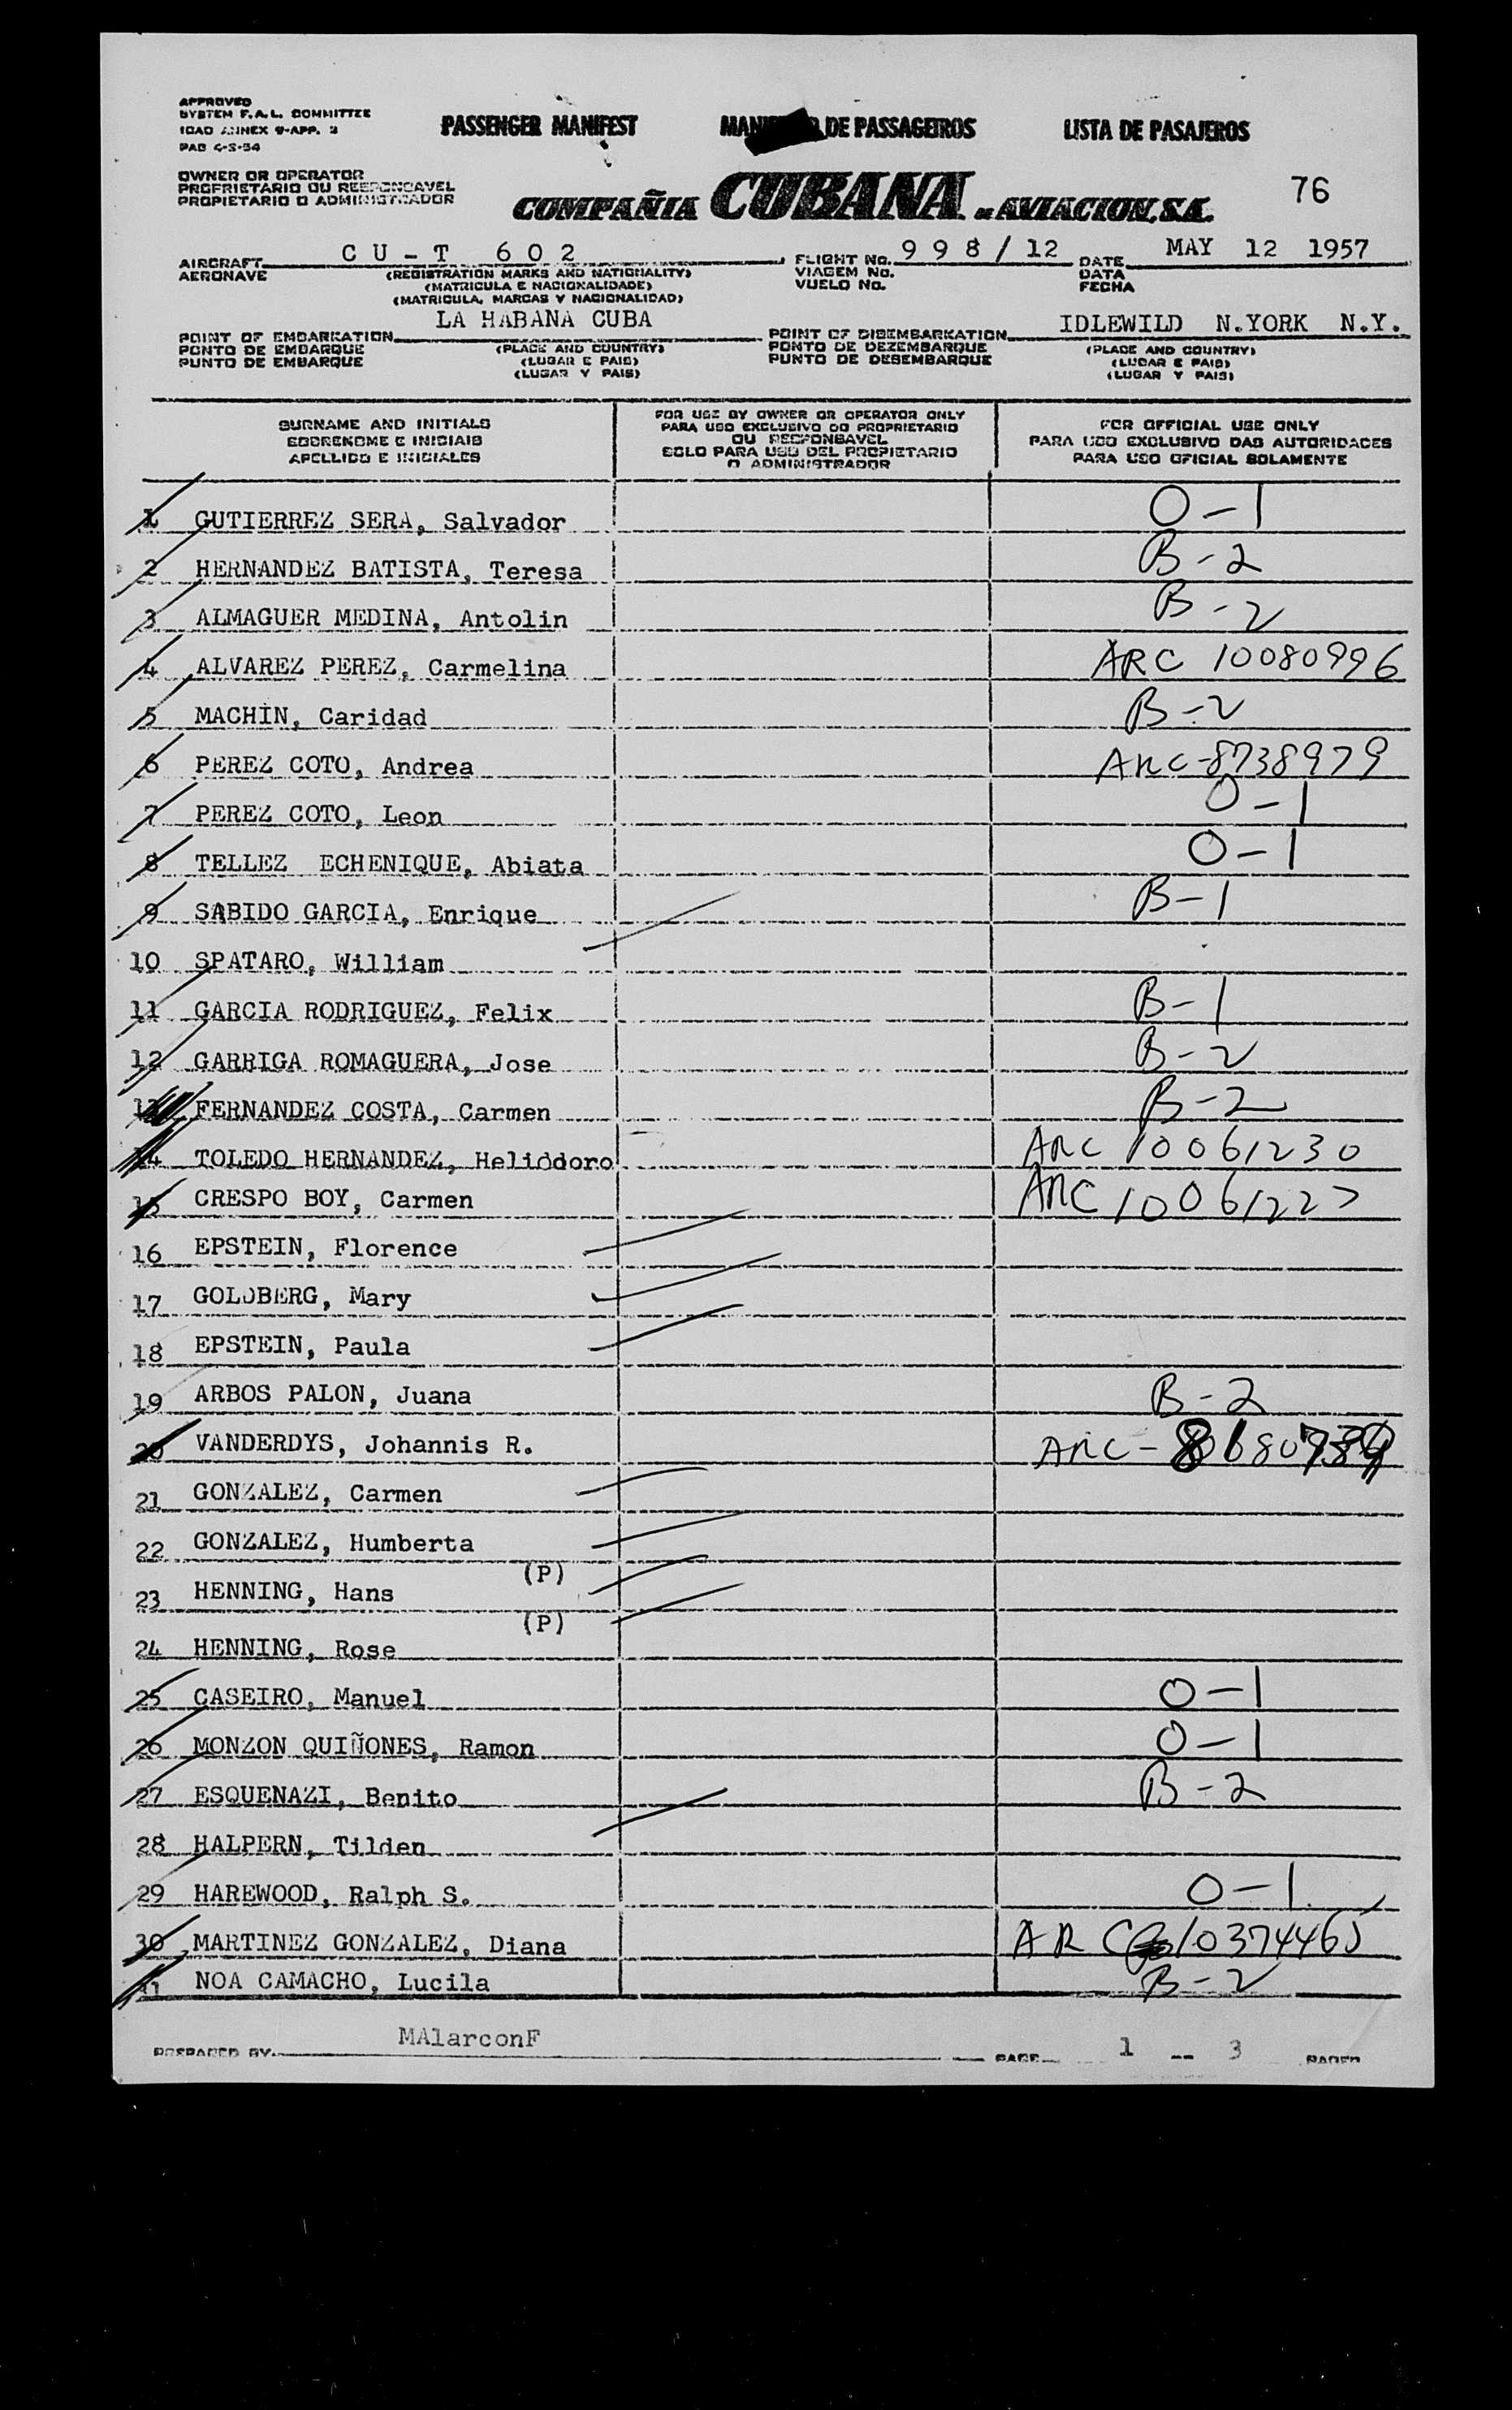 APPROVED
SYSTEM F.A.L. COMMITTEE
ICAO ANNEX 9-APP. 3
PAB 4-S-54
PASSENGER MANIFEST DE PASSAGEIROS LISTA DE PASAJEROS
OWNER OR OPERATOR
PROPRIETARIO OU RESPONSAVEL
PROPIETARIO O ADMINISTRADOR
COMPAÑIA CUBANA DE AVIACION, S.A.
76
AIRCRAFT CU-T 602 FLIGHT No. 998/12 DATE MAY 12 1957
AERONAVE (REGISTRATION MARKS AND NATIONALITY) VIAGEM No. DATA
(MATRICULA E NACIONALIDADE) VUELO No. FECHA
(MATRICULA, MARCAS Y NACIONALIDAD)
POINT OF EMBARKATION LA HABANA CUBA POINT OF DISEMBARKATION IDLEWILD N.YORK N.Y.
PONTO DE EMBARQUE (PLACE AND COUNTRY) PONTO DE DEZEMBARQUE (PLACE AND COUNTRY)
PUNTO DE EMBARQUE (LUGAR E PAIS) PUNTO DE DESEMBARQUE (LUGAR E PAIS)
(LUGAR Y PAIS) (LUGAR Y PAIS)
SURNAME AND INITIALS
SOBRENOME E INICIAIS
APELLIDO E INICIALES
FOR USE BY OWNER OR OPERATOR ONLY
PARA USO EXCLUSIVO DO PROPRIETARIO
OU RESPONSAVEL
SOLO PARA USO DEL PROPIETARIO
O ADMINISTRADOR
FOR OFFICIAL USE ONLY
PARA USO EXCLUSIVO DAS AUTORIDADES
PARA USO OFICIAL SOLAMENTE
1 GUTIERREZ SERA, Salvador O-1
2 HERNANDEZ BATISTA, Teresa B-2
3 ALMAGUER MEDINA, Antolin B-2
4 ALVAREZ PEREZ, Carmelina ARC 10080996
5 MACHIN, Caridad B-2
6 PEREZ COTO, Andrea ARC-8738979
7 PEREZ COTO, Leon O-1
8 TELLEZ ECHENIQUE, Abiata O-1
9 SABIDO GARCIA, Enrique B-1
10 SPATARO, William
11 GARCIA RODRIGUEZ, Felix B-1
12 GARRIGA ROMAGUERA, Jose B-2
13 FERNANDEZ COSTA, Carmen B-2
14 TOLEDO HERNANDEZ, Heliodoro ARC 10061230
15 CRESPO BOY, Carmen ARC 10061227
16 EPSTEIN, Florence
17 GOLDBERG, Mary
18 EPSTEIN, Paula
19 ARBOS PALON, Juana B-2
20 VANDERDYS, Johannis R. ARC-
21 GONZALEZ, Carmen
22 GONZALEZ, Humberta
23 HENNING, Hans (P)
24 HENNING, Rose (P)
25 CASEIRO, Manuel O-1
26 MONZON QUIÑONES, Ramon O-1
27 ESQUENAZI, Benito B-2
28 HALPERN, Tilden
29 HAREWOOD, Ralph S. O-1
30 MARTINEZ GONZALEZ, Diana ARC 10374465
31 NOA CAMACHO, Lucila B-2
PREPARED BY MAlarconF PAGE 1 -- 3 PAGES